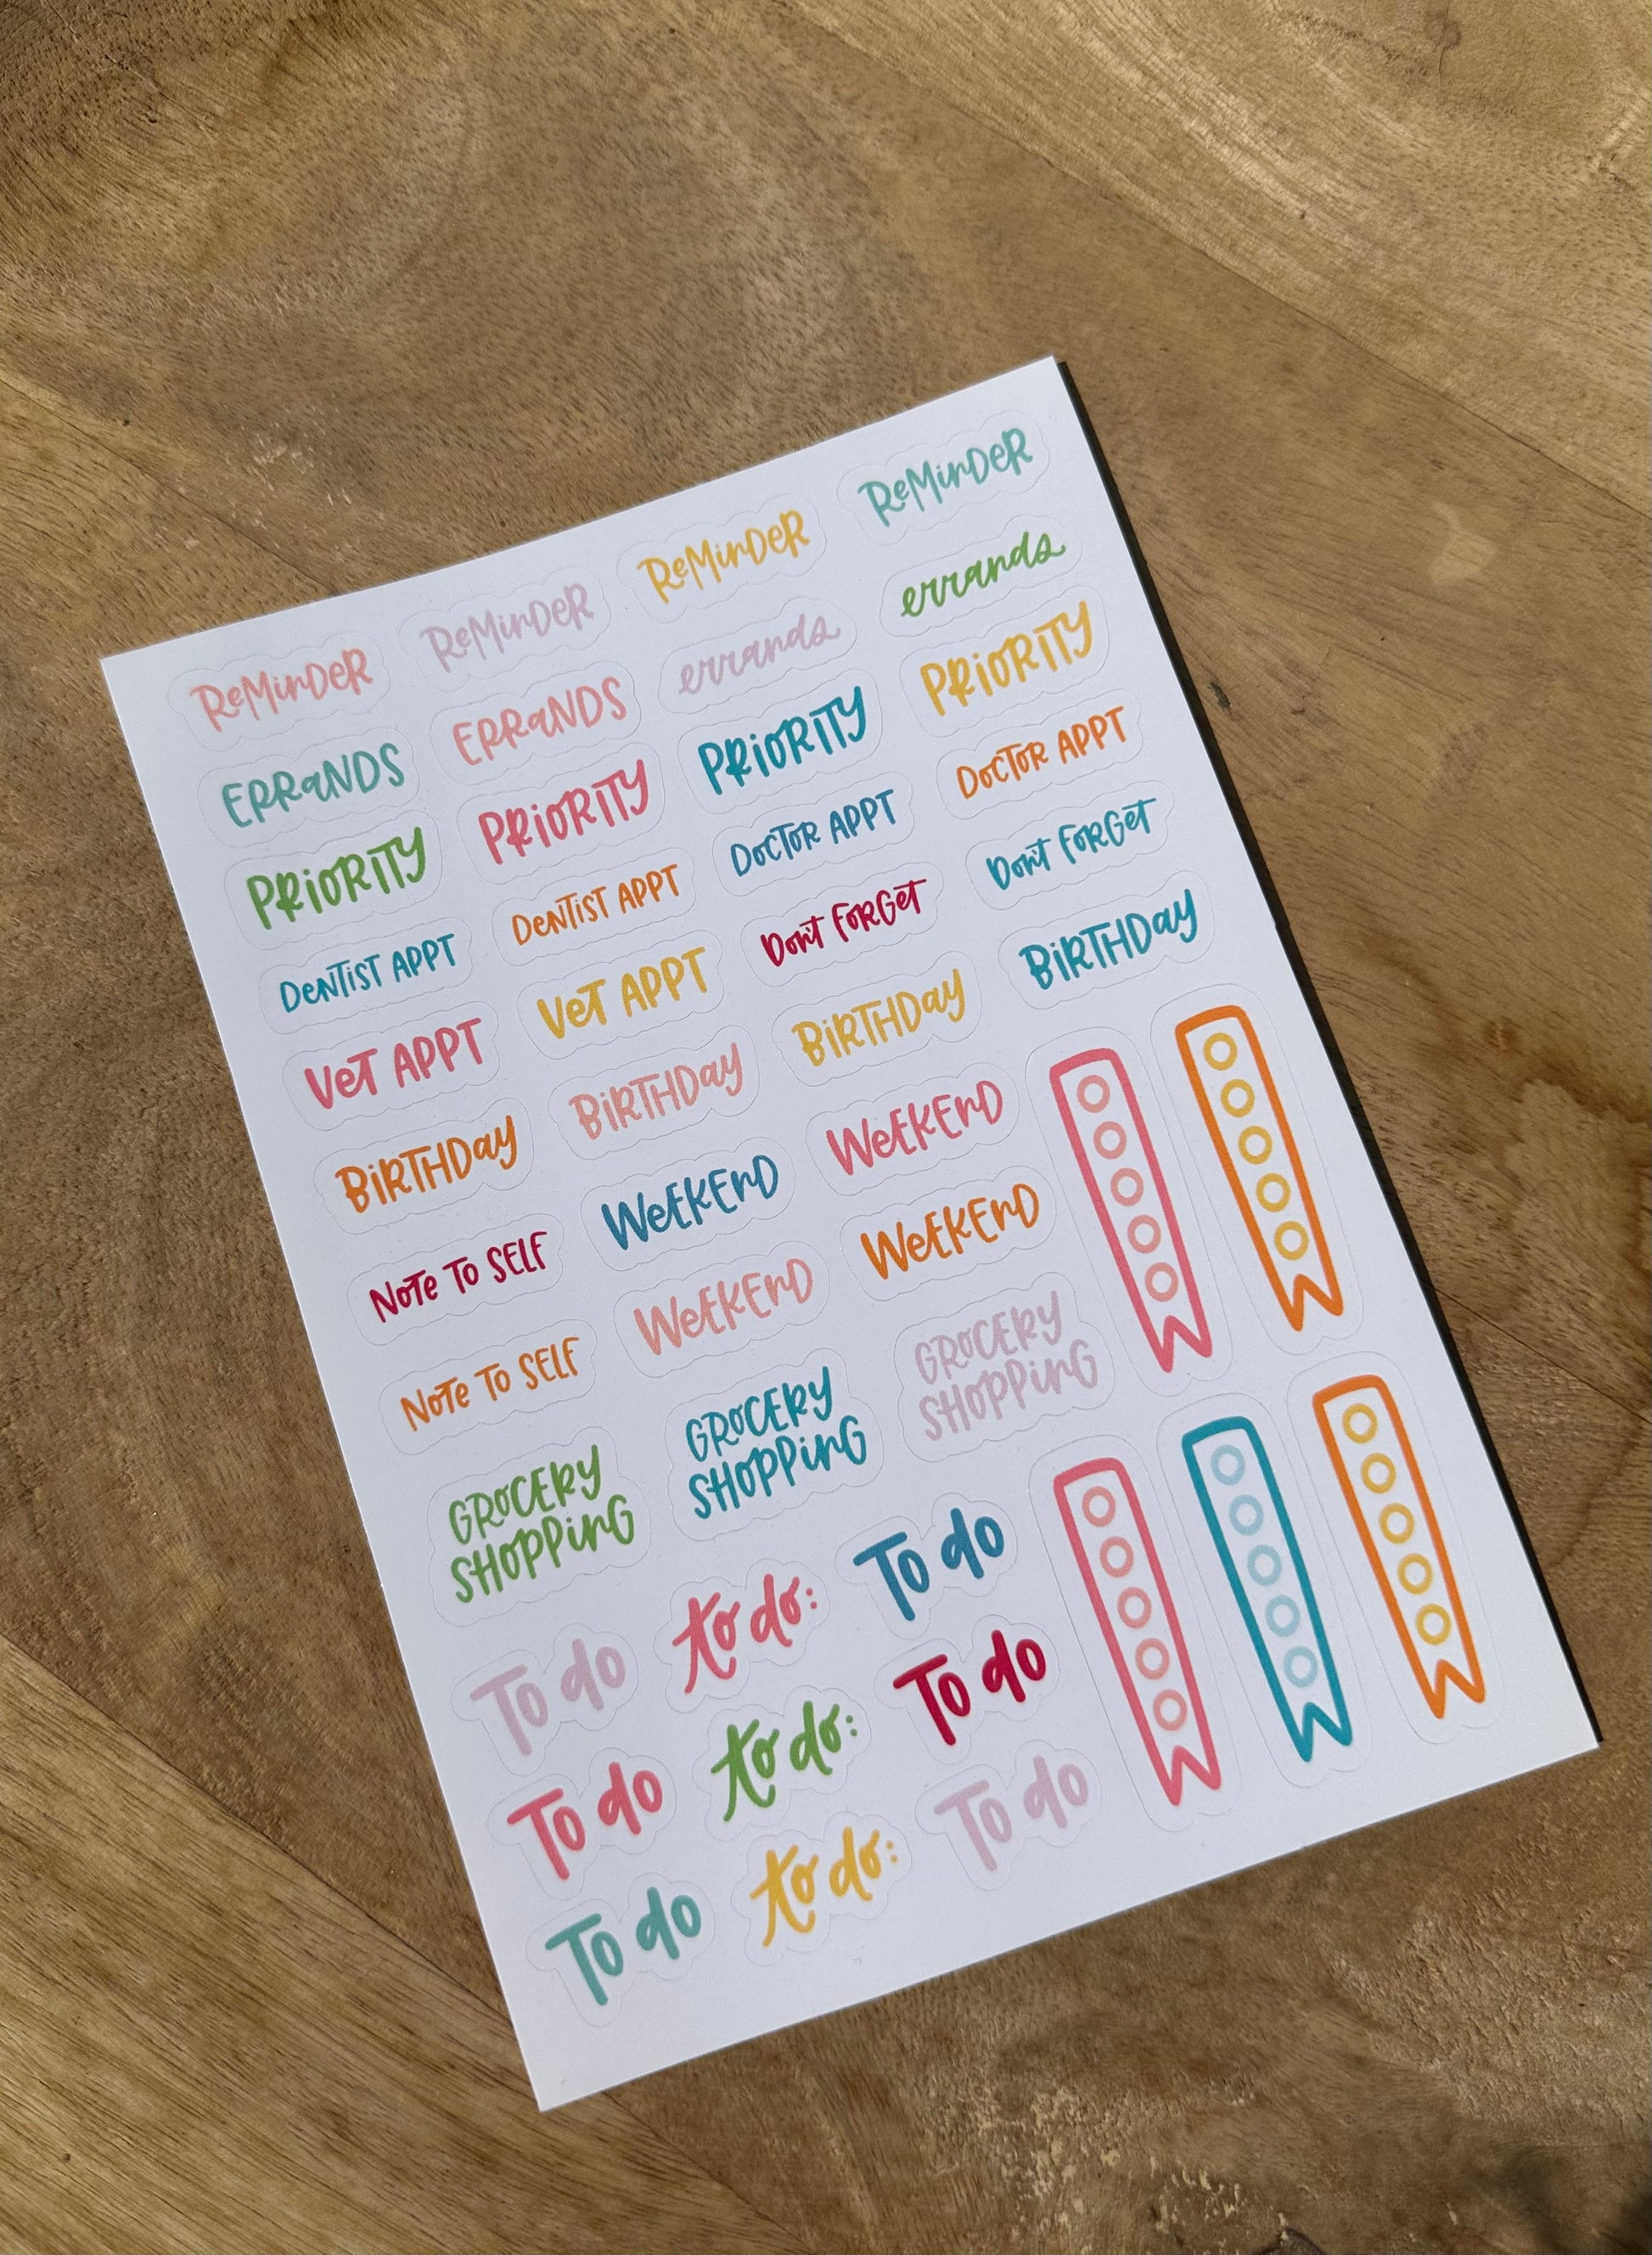 ReMinDeR ReMinDeR ReMinDeR ReMinDeR
ERRaNDS ERRaNDS errands errands
PRiORiTY PRiORiTY PRiORiTY PRiORiTY
DeNTiST APPT DeNTiST APPT DOCTOR APPT DOCTOR APPT
VeT APPT VeT APPT Don't FORGet Don't FORGet
BiRTHDay BiRTHDay BiRTHDay BiRTHDay
NOTe TO SELF WeEKEnD WeEKEnD
NOTe TO SELF WeEKEnD WeEKEnD
GROCERY
SHOPPinG
GROCERY
SHOPPinG
GROCERY
SHOPPinG
To do to do: To do
To do to do: To do
To do to do: To do